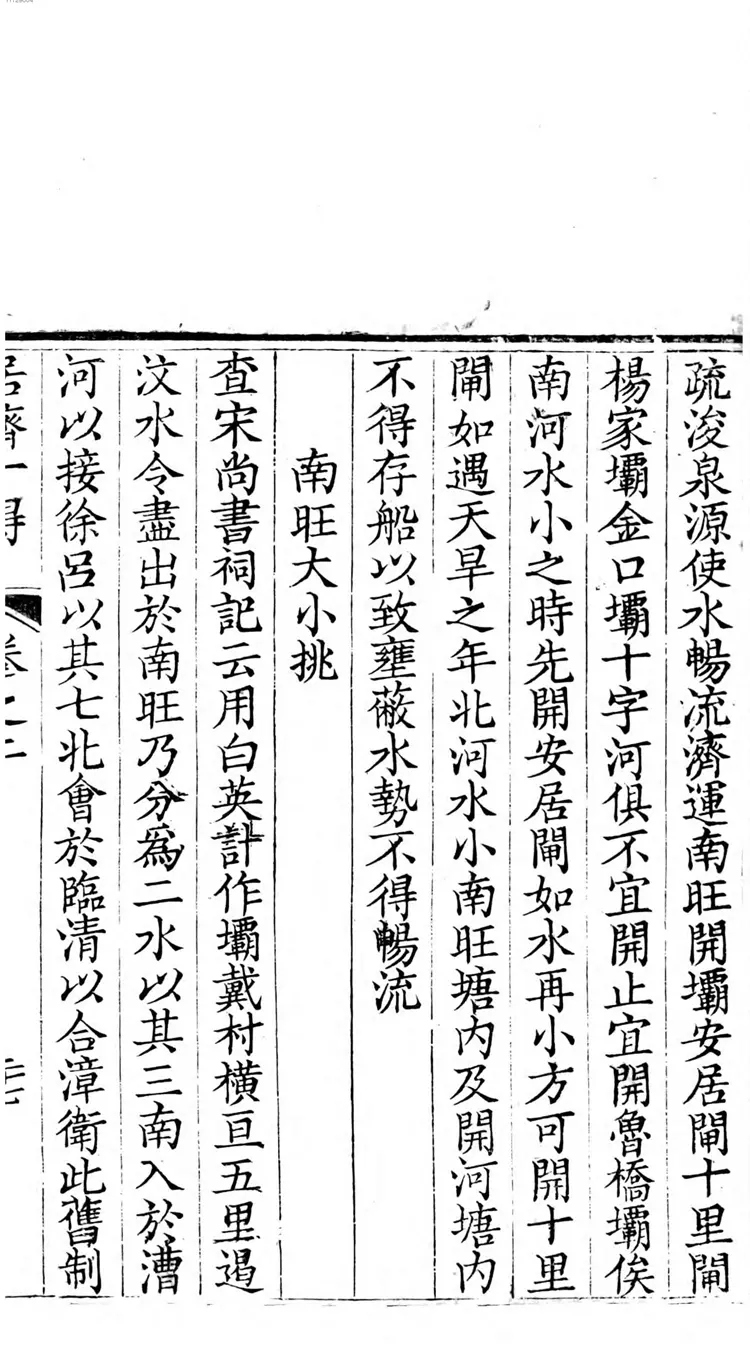 疏浚泉源使水暢流濟運南旺開壩安居閘十里閘
楊家壩金口壩十字河俱不宜開止宜開魯橋壩俟
南河水小之時先開安居閘如水再小方可開十里
閘如遇天旱之年北河水小南旺塘内及開河塘内
不得存船以致壅蔽水勢不得暢流
南旺大小挑
查宋尚書祠記云用白英計作壩戴村橫亘五里遏
汶水令盡出於南旺乃分爲二水以其三南入於漕
河以接徐呂以其七北會於臨清以合漳衛此舊制
居濟一得
卷之二